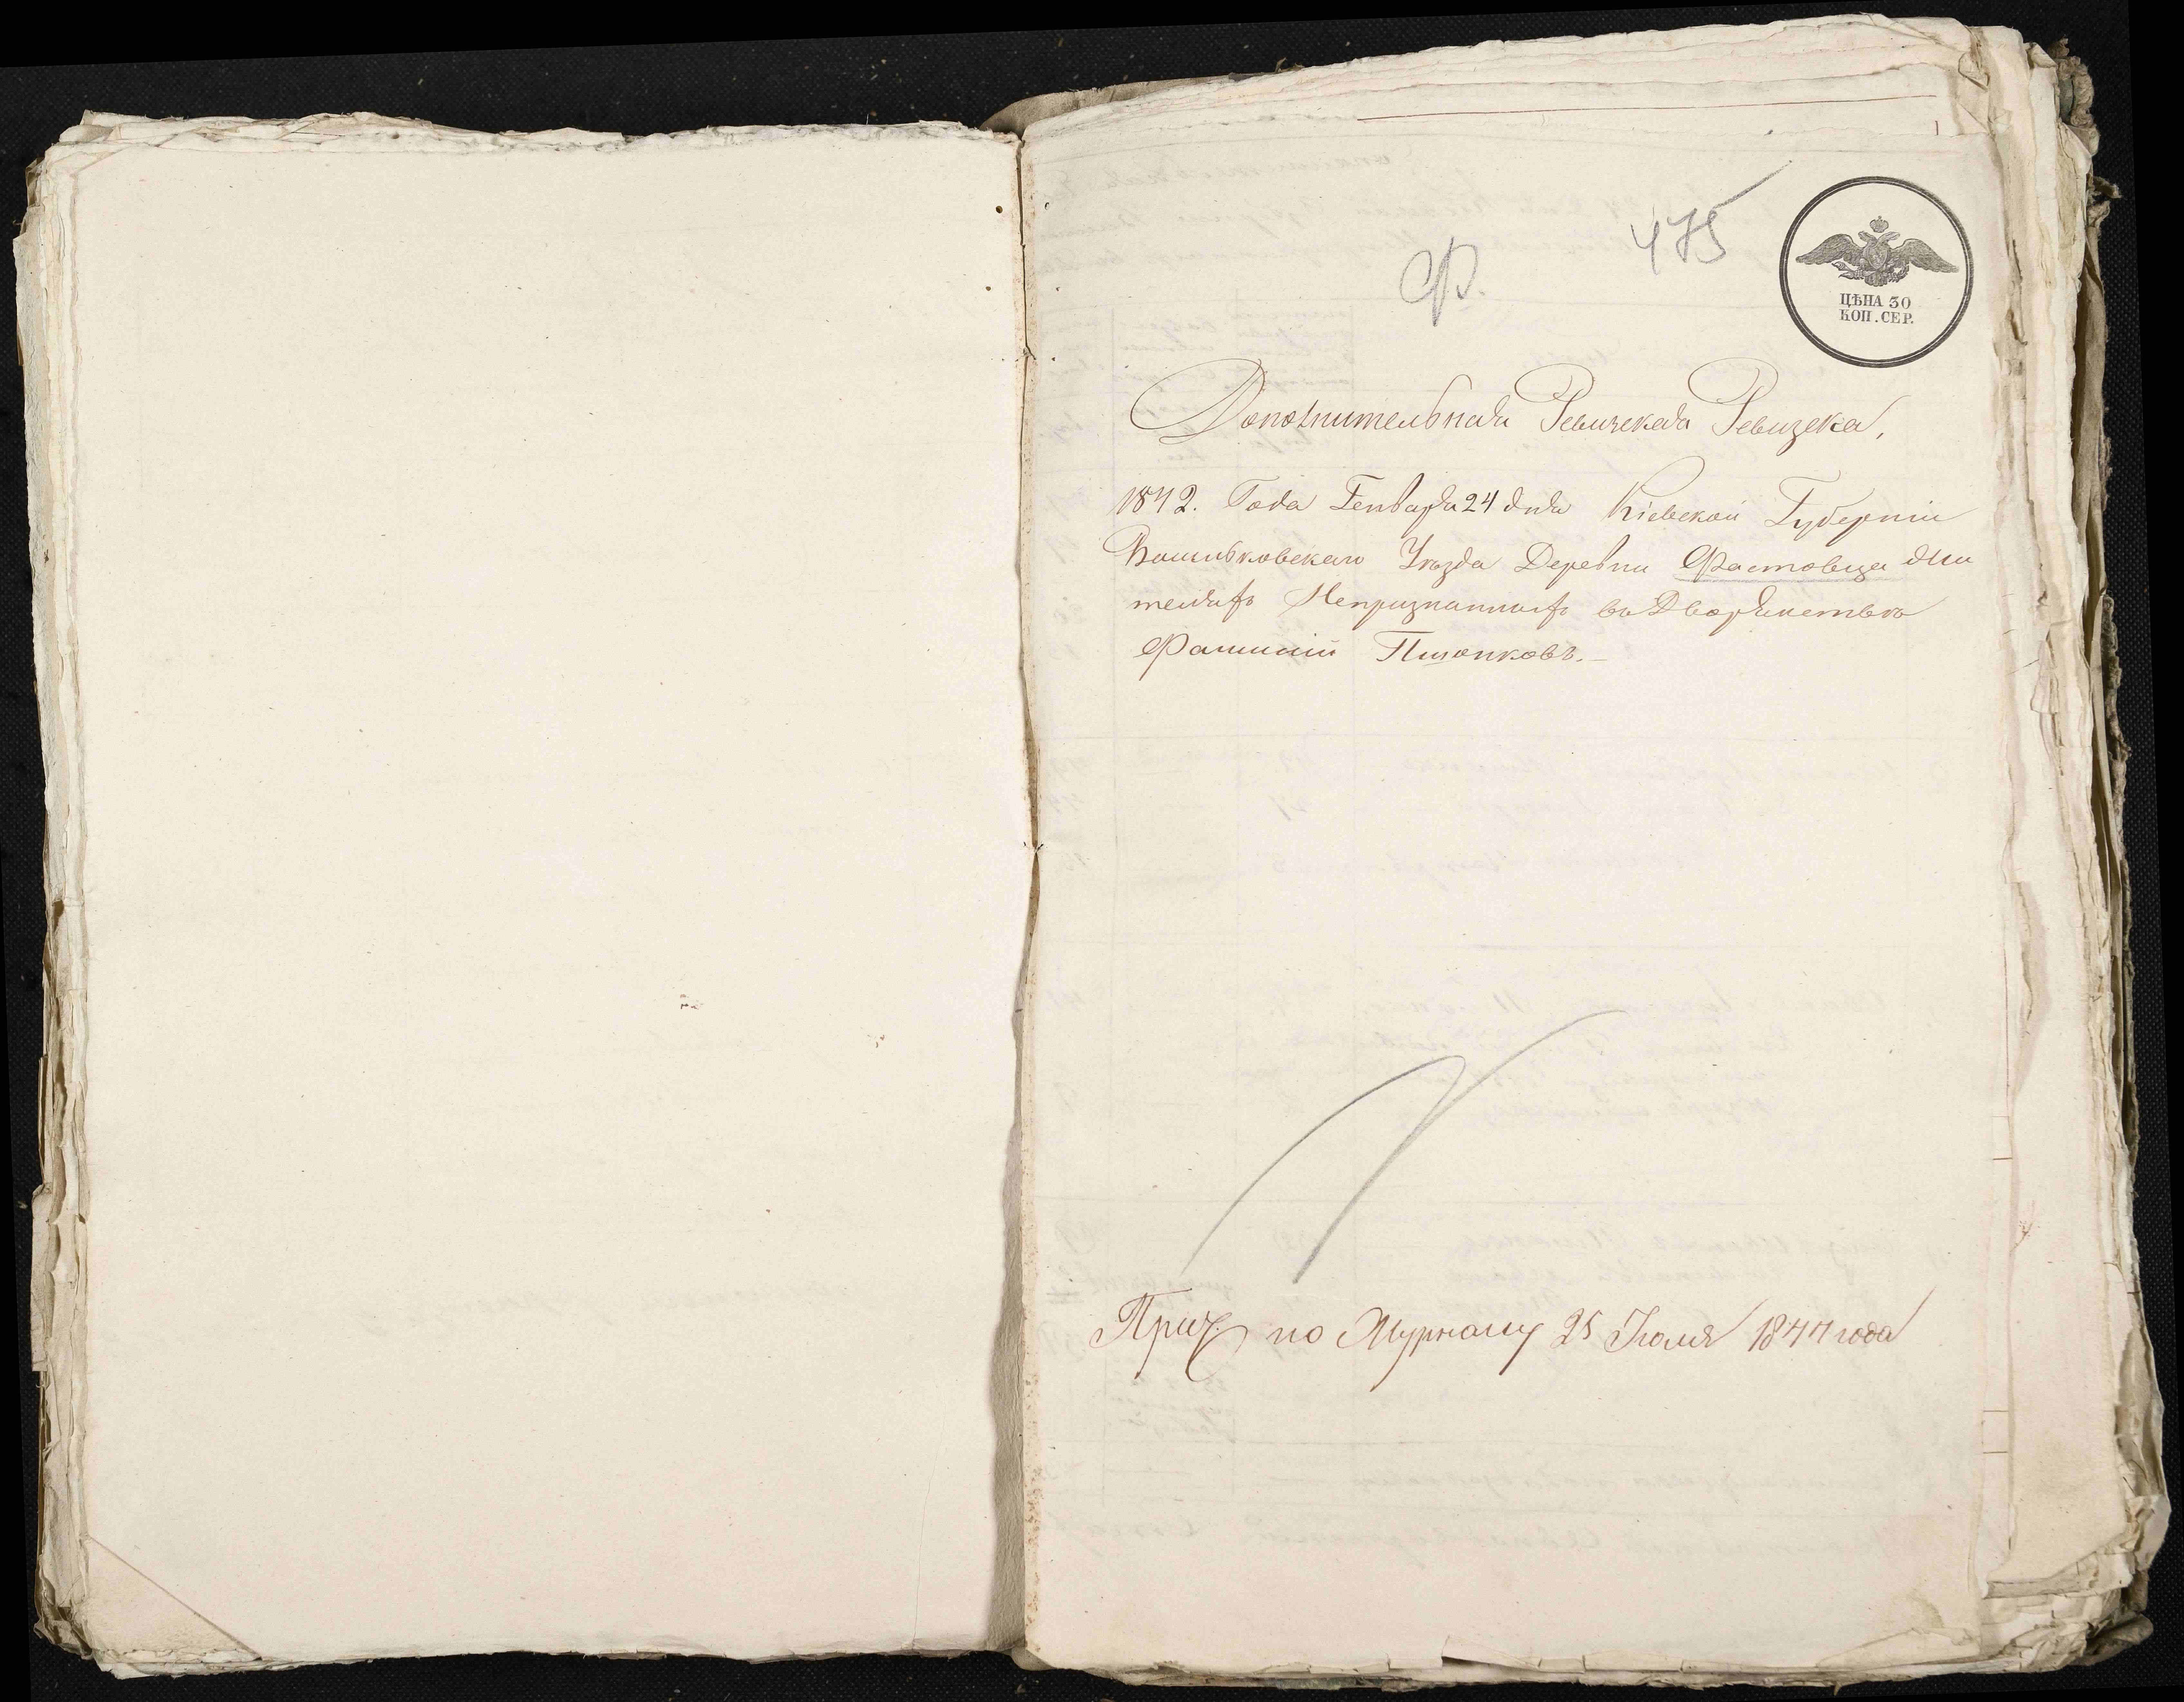 475
Ф.
ЦѢНА 30
КОП. СЕР.
Дополнительная Ревизская
1842. Года Генваря 24 дня Кіевской Губерніи
Васильковскаго Уѣзда Деревни Фастовца жи
телях Непризнанных въ Дворянствѣ
Фамилій
по Журналу 25 Іюля 1844 года